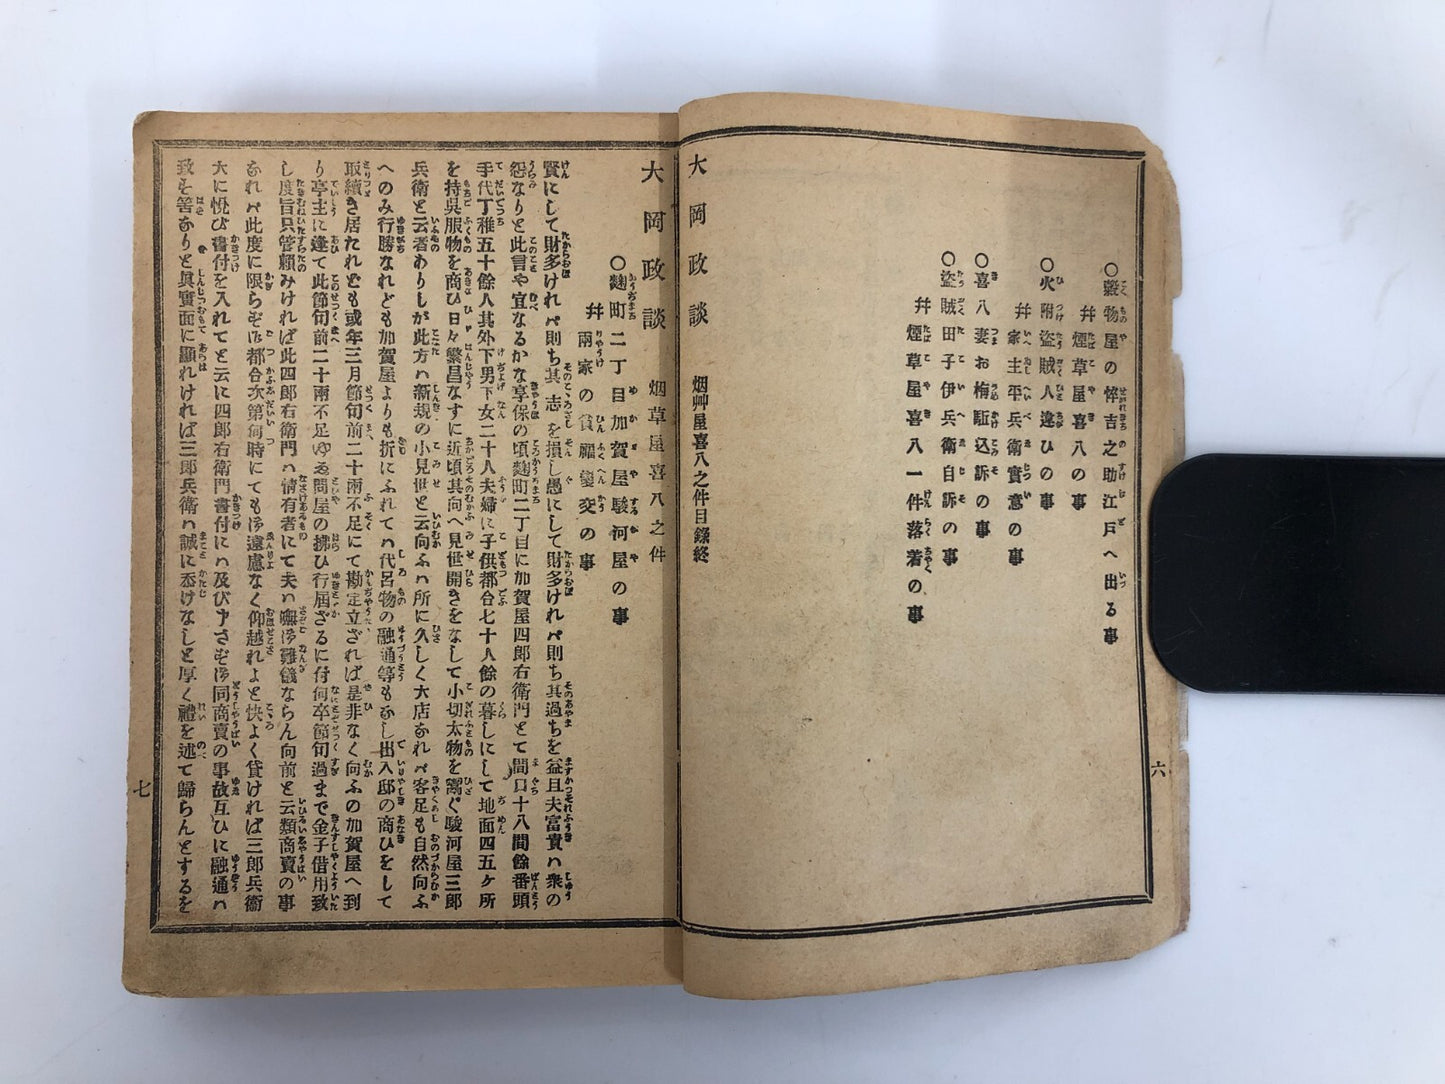 ○穀物屋の悴吉之助江戸へ出る事
幷煙草屋喜八の事
○火附盜賊人違ひの事
幷家主平兵衞實意の事
○喜八妻お梅駈込訴の事
○盜賊田子伊兵衞自訴の事
幷煙草屋喜八一件落着の事
大岡政談 烟艸屋喜八之件目錄終
六
大岡政談 烟草屋喜八之件
○麴町二丁目加賀屋駿河屋の事
幷兩家の貧福變交の事
賢にして財多けれバ則ち其志を損し愚にして財多けれバ則ち其過ちを益且夫富貴ハ衆の
怨なりと此言や宜なるかな享保の頃麴町二丁目に加賀屋四郎右衞門とて間口十八間餘番頭
手代丁稚五十餘人其外下男下女二十人夫婦に子供都合七十人餘の暮しにして地面四五ケ所
を持吳服物を商ひ日々繁昌なすに近頃其向へ見世開きをなして小切太物を鬻ぐ駿河屋三郎
兵衞と云者ありしが此方ハ新規の小見世と云向ふハ所に久しく大店なれバ客足も自然向ふ
へのみ行勝なれども加賀屋よりも折にふれてハ代呂物の融通等もなし出入邸の商ひをして
取續き居たれども或年三月節句前二十兩不足にて勘定立ざれば是非なく向ふの加賀屋へ到
り亭主に逢て此節句前二十兩不足ゆゑ問屋の拂ひ行屆ざるに付何卒節句過まで金子借用致
し度旨只管賴みければ此四郎右衞門ハ情有者にて夫ハ嘸御難儀ならん向前と云類商賣の事
なれバ此度に限らず御都合次第何時にても御遠慮なく仰越れよと快よく貸ければ三郎兵衞
大に悅び書付を入れてと云に四郎右衞門書付にハ及び申さず御同商賣の事故互ひに融通ハ
致も筈なりと眞實面に顯れければ三郎兵衞ハ誠に忝けなしと厚く禮を述て歸らんとするを
七